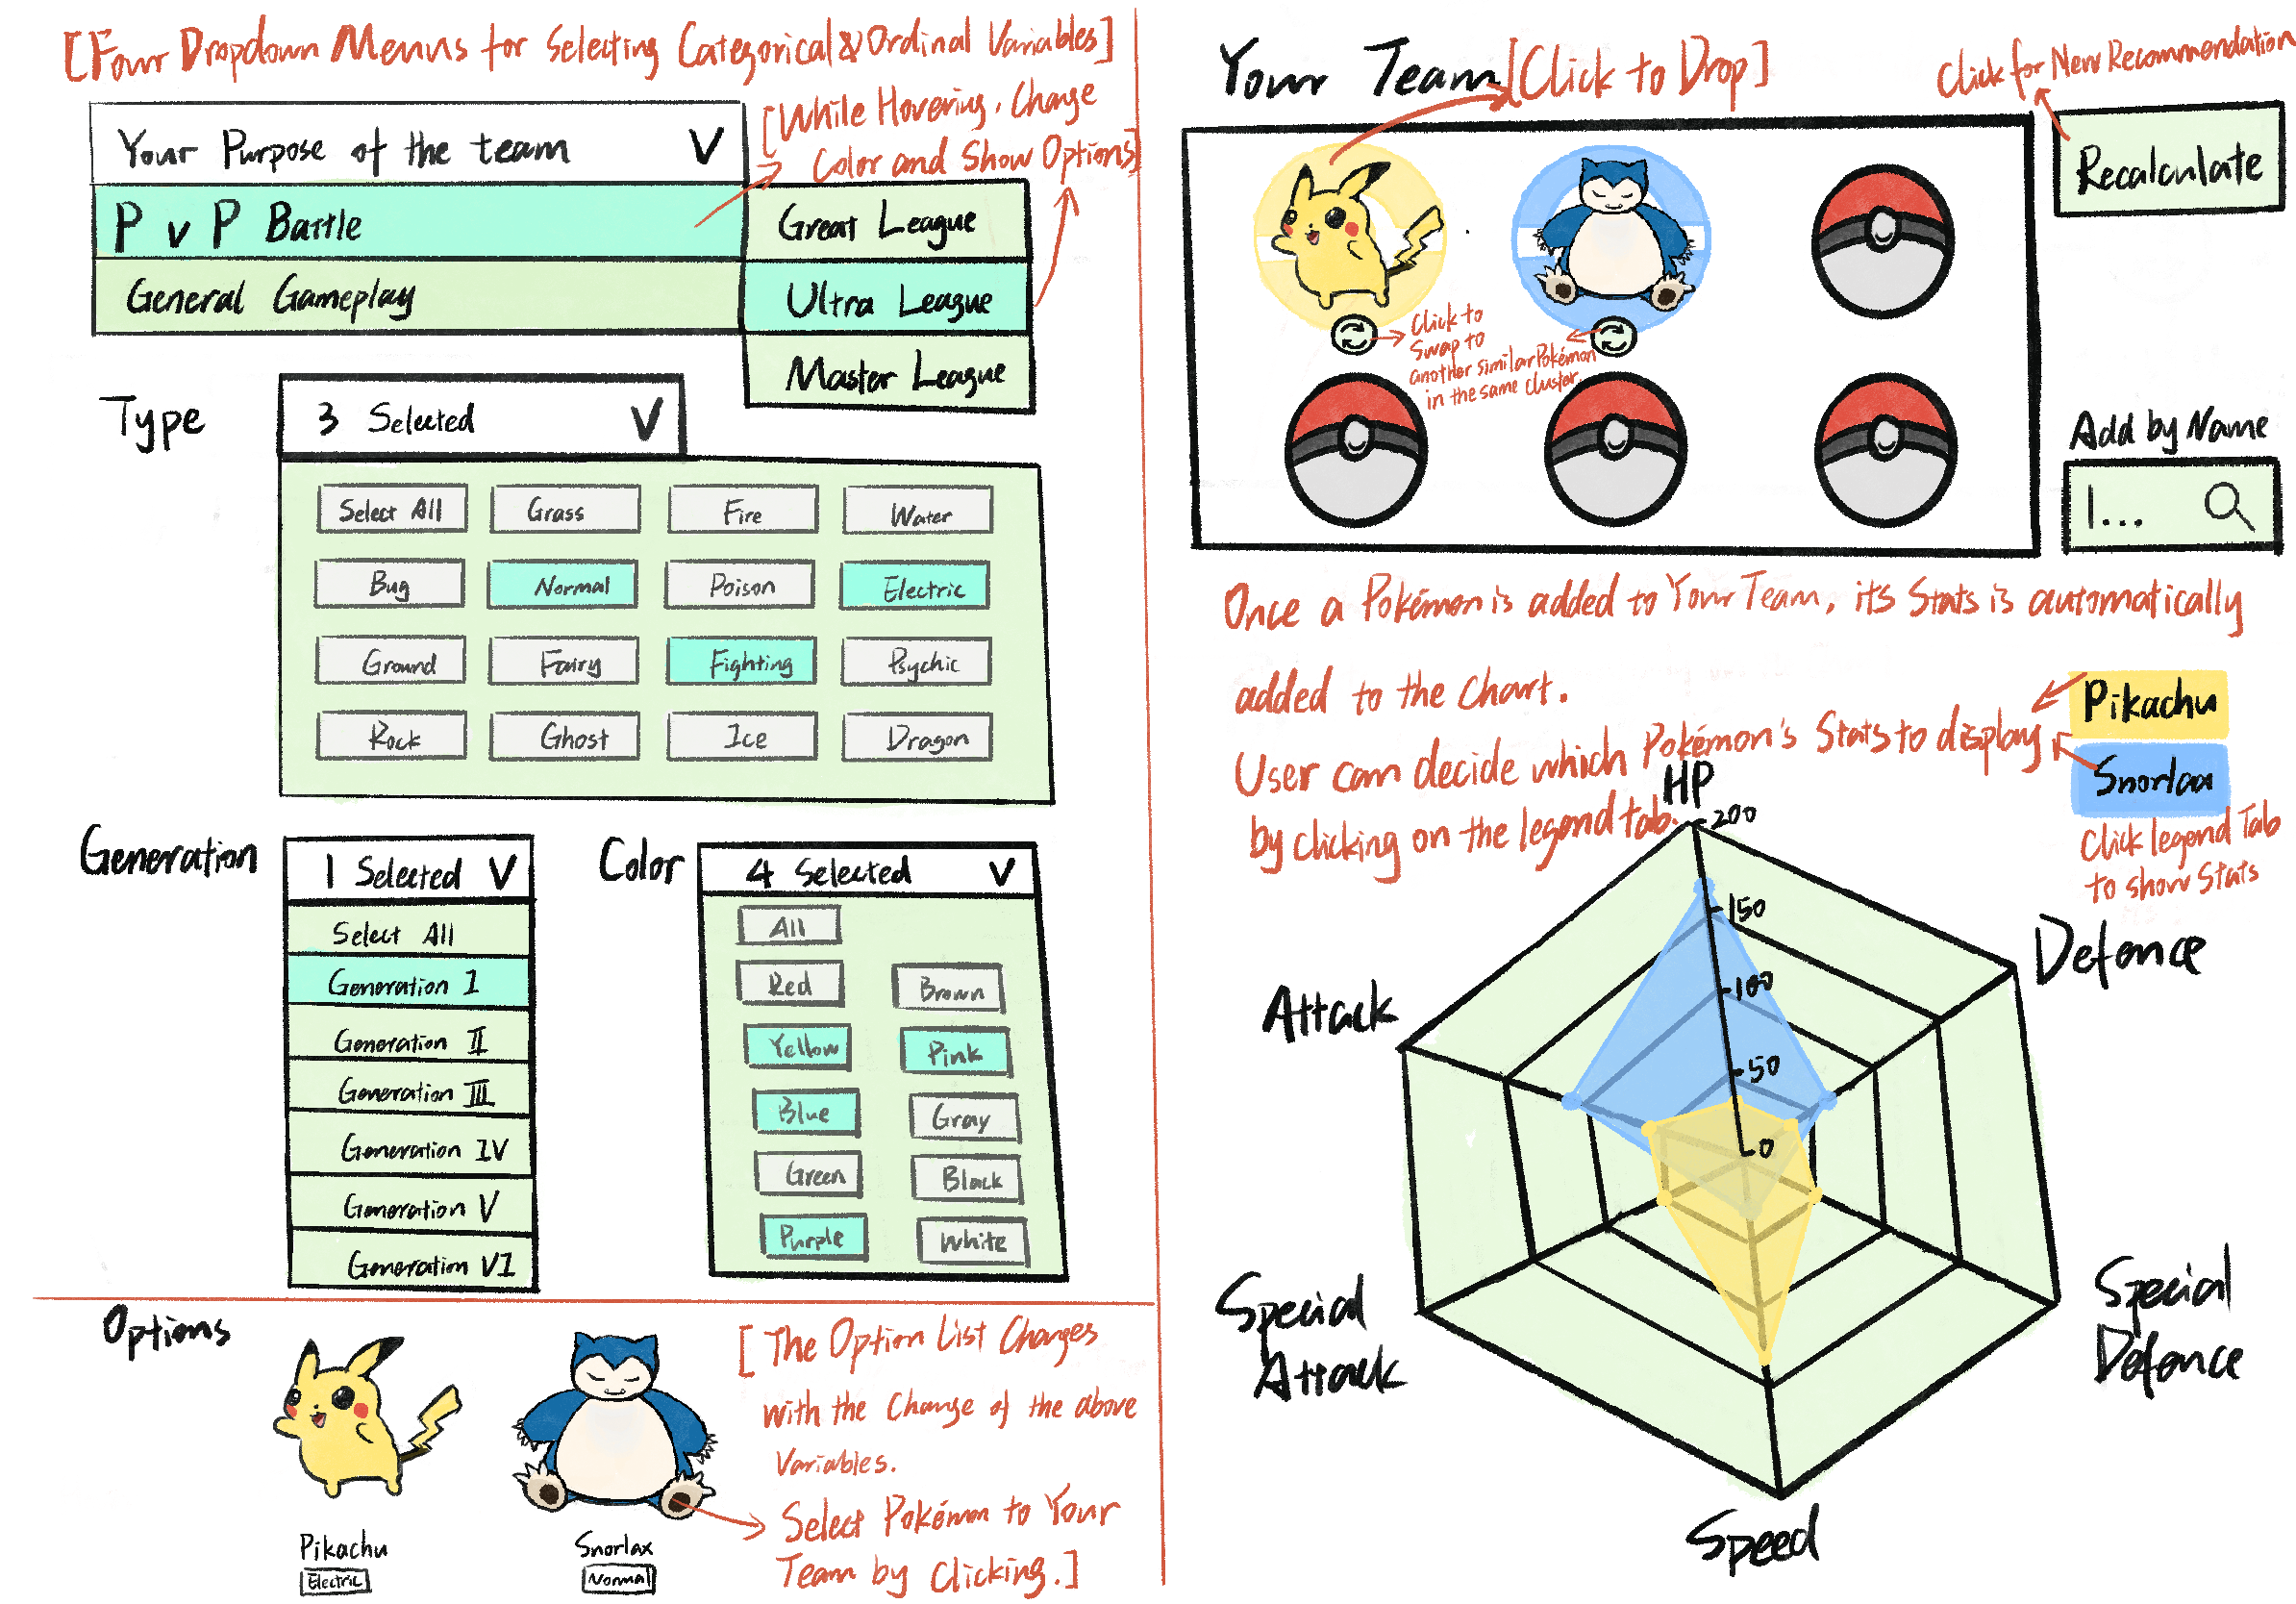 [Four Dropdown Menus for Selecting Categorical & Ordinal Variables]
Your Purpose of the team V
[While Hovering, Change
Color and Show Options]
P v P Battle
General Gameplay
Great League
Ultra League
Master League
Type
3 Selected V
Select All Grass Fire Water
Bug Normal Poison Electric
Ground Fairy Fighting Psychic
Rock Ghost Ice Dragon
Generation
1 Selected V
Select All
Generation I
Generation II
Generation III
Generation IV
Generation V
Generation VI
Color
4 Selected V
All
Red Brown
Yellow Pink
Blue Gray
Green Black
Purple White
Options
Pikachu
Electric
Snorlax
Normal
[The Option List Changes
with the Change of the above
Variables.
Select Pokémon to Your
Team by Clicking.]
Your Team [Click to Drop]
Click for New Recommendation
Recalculate
Click to
Swap to
another similar Pokémon
in the same cluster.
Add by Name
|...
Once a Pokémon is added to Your Team, its Stats is automatically
added to the chart.
User can decide which Pokémon's Stats to display
by clicking on the legend tab.
Pikachu
Snorlax
Click legend Tab
to show Stats
HP
200
150
100
50
0
Defence
Attack
Special
Attack
Special
Defence
Speed